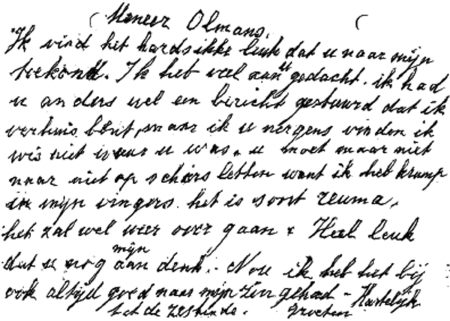 Meneer Olmans,
Ik vind het hardstikke leuk dat u naar mijn
toekomt. Ik heb veel aan u gedacht. ik had
u anders wel een bericht gestuurd dat ik
verhuis bent, maar ik u nergens vinden ik
wis niet waar u was. u moet maar niet
naar niet op schiers letten want ik heb kramp
in mijn vingers. het is soort reuma,
het zal wel weer over gaan & Heel leuk
dat u nog aan mijn denk. Nou ik heb het bij
ook altijd goed naar mijn zin gehad - Hartelijk
groeten